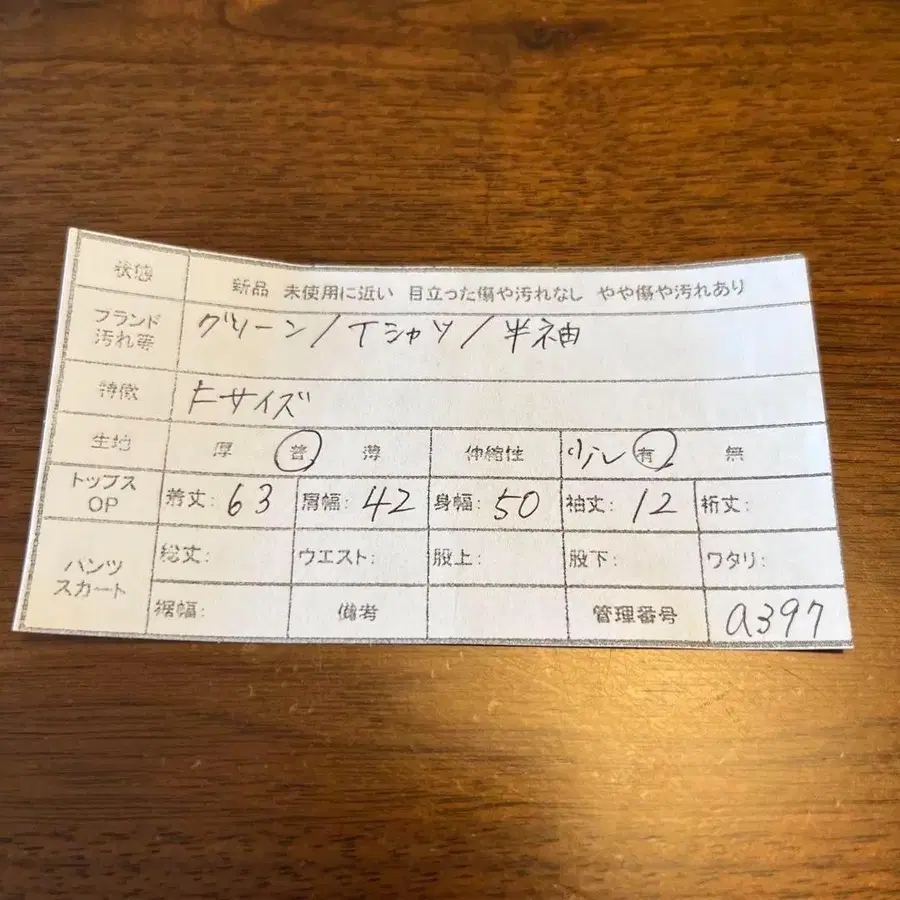 状態 新品 未使用に近い 目立った傷や汚れなし やや傷や汚れあり
ブランド 汚れ等 グリーン/Tシャツ/半袖
特徴 Fサイズ
生地 厚 普 薄 伸縮性 少し 有 無
トップス OP 着丈: 63 肩幅: 42 身幅: 50 袖丈: 12 裄丈:
パンツ スカート 総丈: ウエスト: 股上: 股下: ワタリ:
裾幅: 備考 管理番号 a397